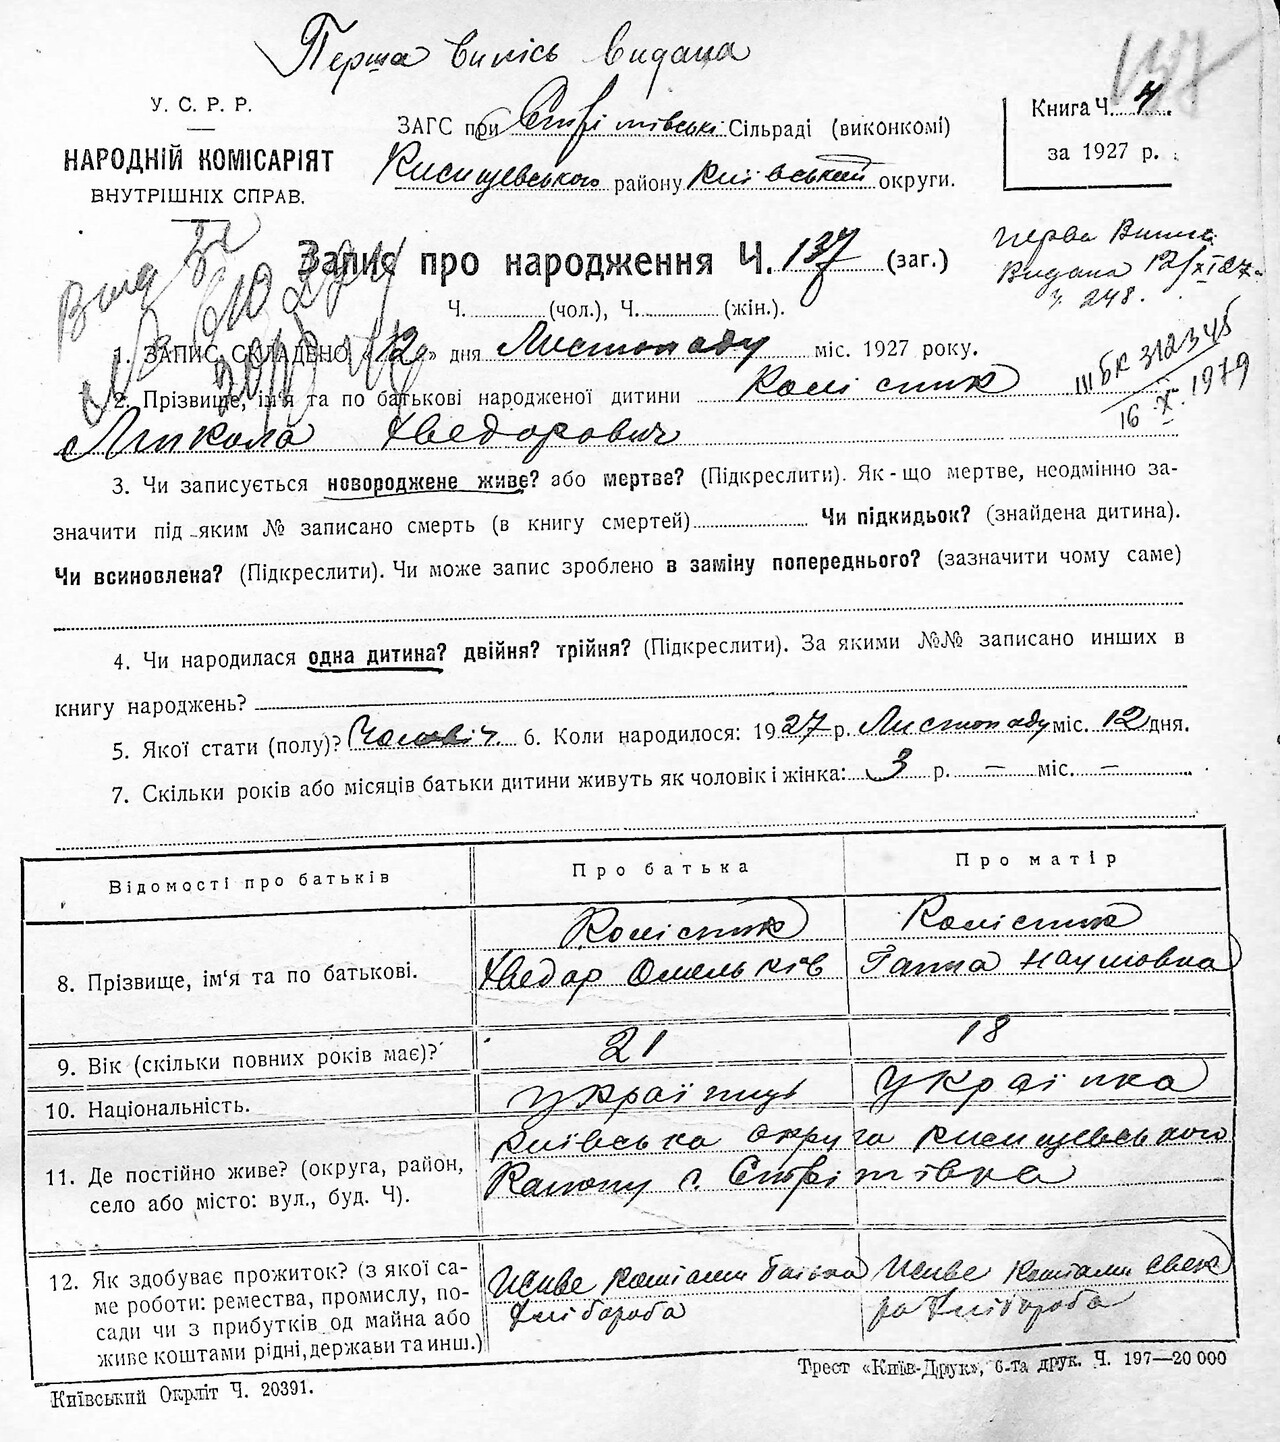 Перша випись видана
У. С. Р. Р.
НАРОДНІЙ КОМІСАРІЯТ
ВНУТРІШНІХ СПРАВ.
ЗАГС при Стрітівські Сільраді (виконкомі)
району Київський округи.
Книга Ч. 4
за 1927 р.
137
Запис про народження Ч. 137 (заг.)
Ч. (чол.), Ч. (жін.).
Перва Випись
Видана 12/XI 27
ч. 248.
III БК 312345
16.X.1979
1. ЗАПИС СКЛАДЕНО «12» дня Листопаду міс. 1927 року.
2. Прізвище, ім'я та по батькові народженої дитини
Микола Хведорович
3. Чи записується новороджене живе? або мертве? (Підкреслити). Як-що мертве, неодмінно за-
значити під яким № записано смерть (в книгу смертей) Чи підкидьок? (знайдена дитина).
Чи всиновлена? (Підкреслити). Чи може запис зроблено в заміну попереднього? (зазначити чому саме)
4. Чи народилася одна дитина? двійня? трійня? (Підкреслити). За якими №№ записано инших в
книгу народжень?
5. Якої стати (полу)? Чоловіч. 6. Коли народилося: 1927 р. Листопаду міс. 12 дня.
7. Скільки років або місяців батьки дитини живуть як чоловік і жінка: 3 р. — міс. —
Відомості про батьків Про батька Про матір
8. Прізвище, ім'я та по батькові.
Хведор Омельків Ганна Наумовна
9. Вік (скільки повних років має)? 21 18
10. Національність. Українці Українка
11. Де постійно живе? (округа, район,
село або місто: вул., буд. Ч).
Київська округа
Району с. Стрітівка
12. Як здобуває прожиток? (з якої са-
ме роботи: ремества, промислу, по-
сади чи з прибутків од майна або
живе коштами рідні, держави та инш.)
Живе коштами батька
Хлібороба
Живе коштами свек
ра Хлібороба
Київський Окрліт Ч. 20391.
Трест «Київ-Друк», 6-та друк. Ч. 197—20 000